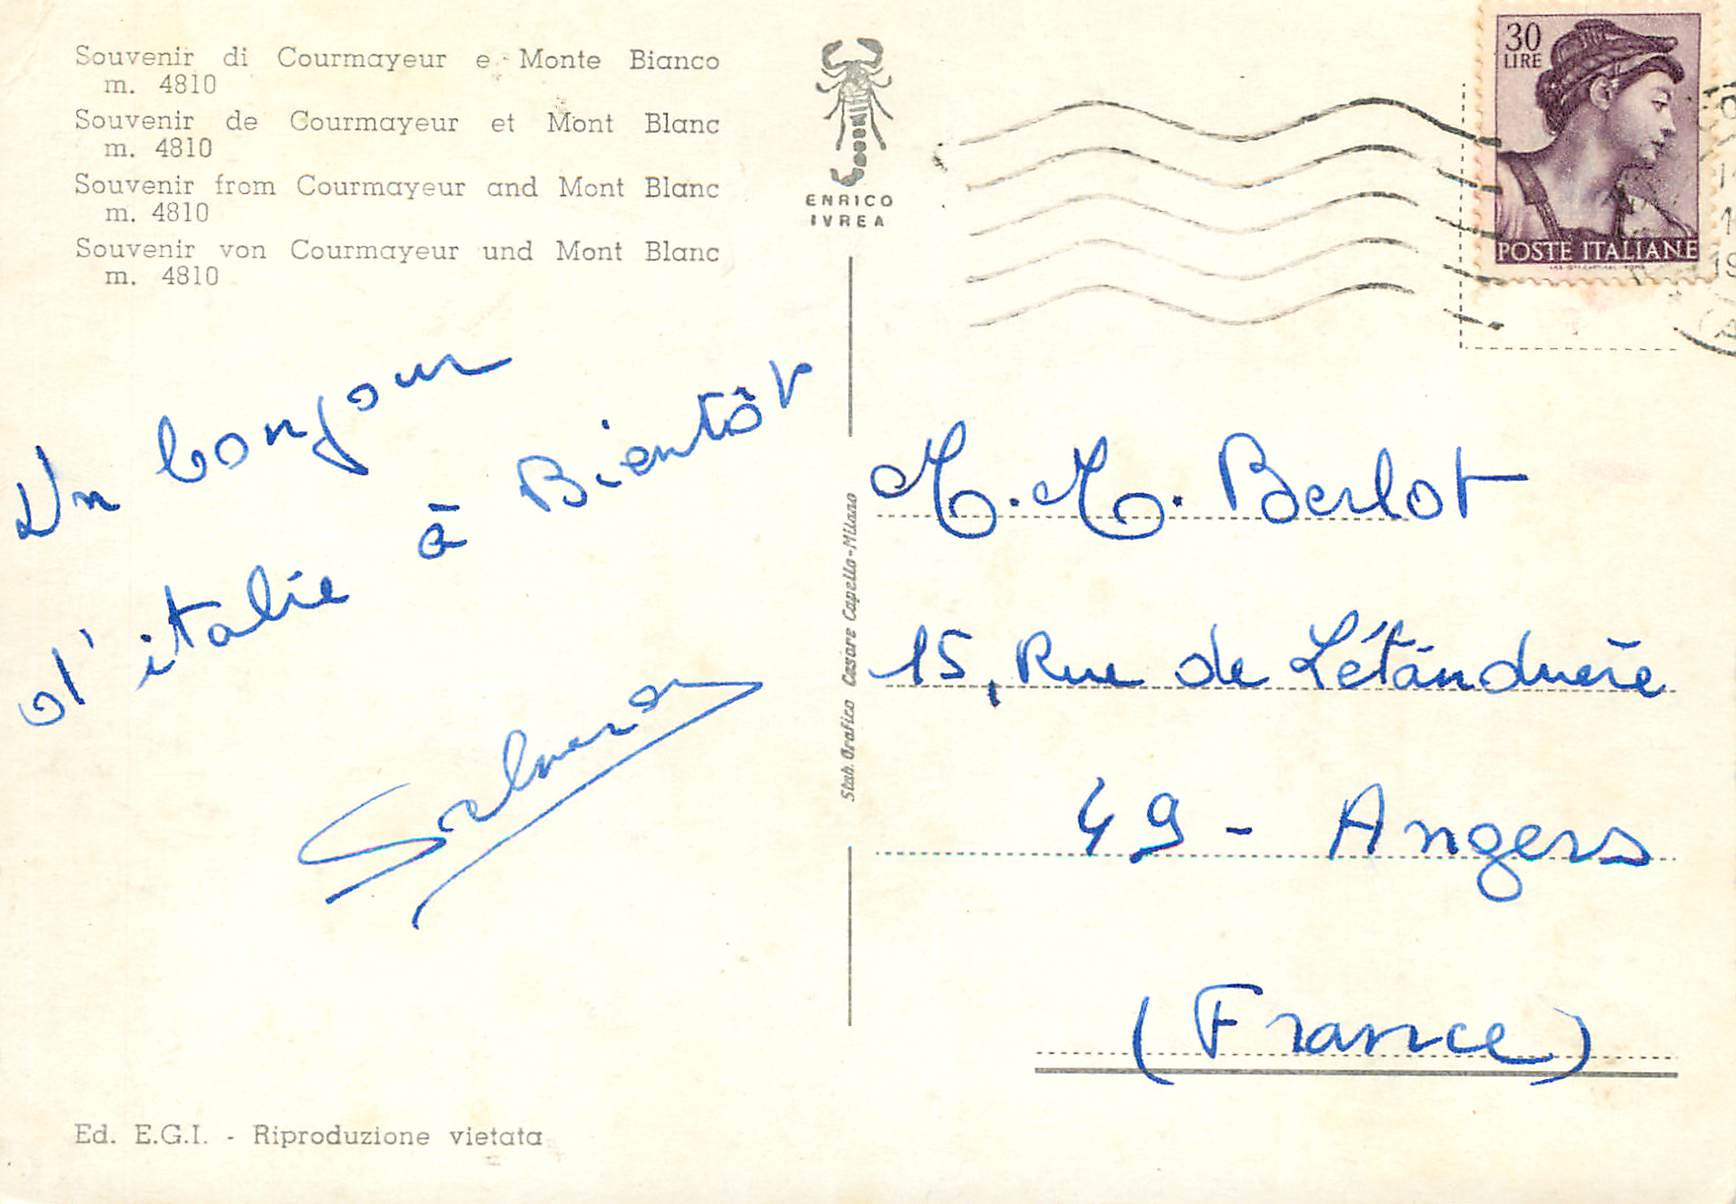 Souvenir di Courmayeur e Monte Bianco
m. 4810
Souvenir de Courmayeur et Mont Blanc
m. 4810
Souvenir from Courmayeur and Mont Blanc
m. 4810
Souvenir von Courmayeur und Mont Blanc
m. 4810
ENRICO
IVREA
30
LIRE
POSTE ITALIANE
Un bonjour
d'italie à Bientôt
Stab. Grafico Cesare Capello-Milano
M. M. Berlot
15, Rue de Létanduère
49 - Angers
(France)
Ed. E.G.I. - Riproduzione vietata